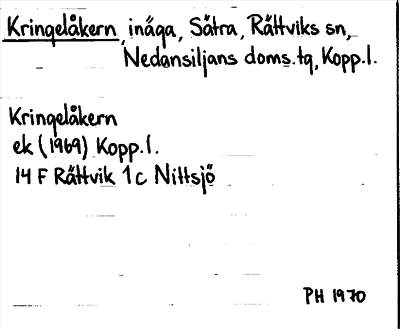 Kringelåkern, inäga, Sätra, Rättviks sn,
Nedansiljans doms.tg, Kopp.l.
Kringelåkern
ek (1969) Kopp.l.
14 F Rättvik 1 c Nittsjö
PH 1970